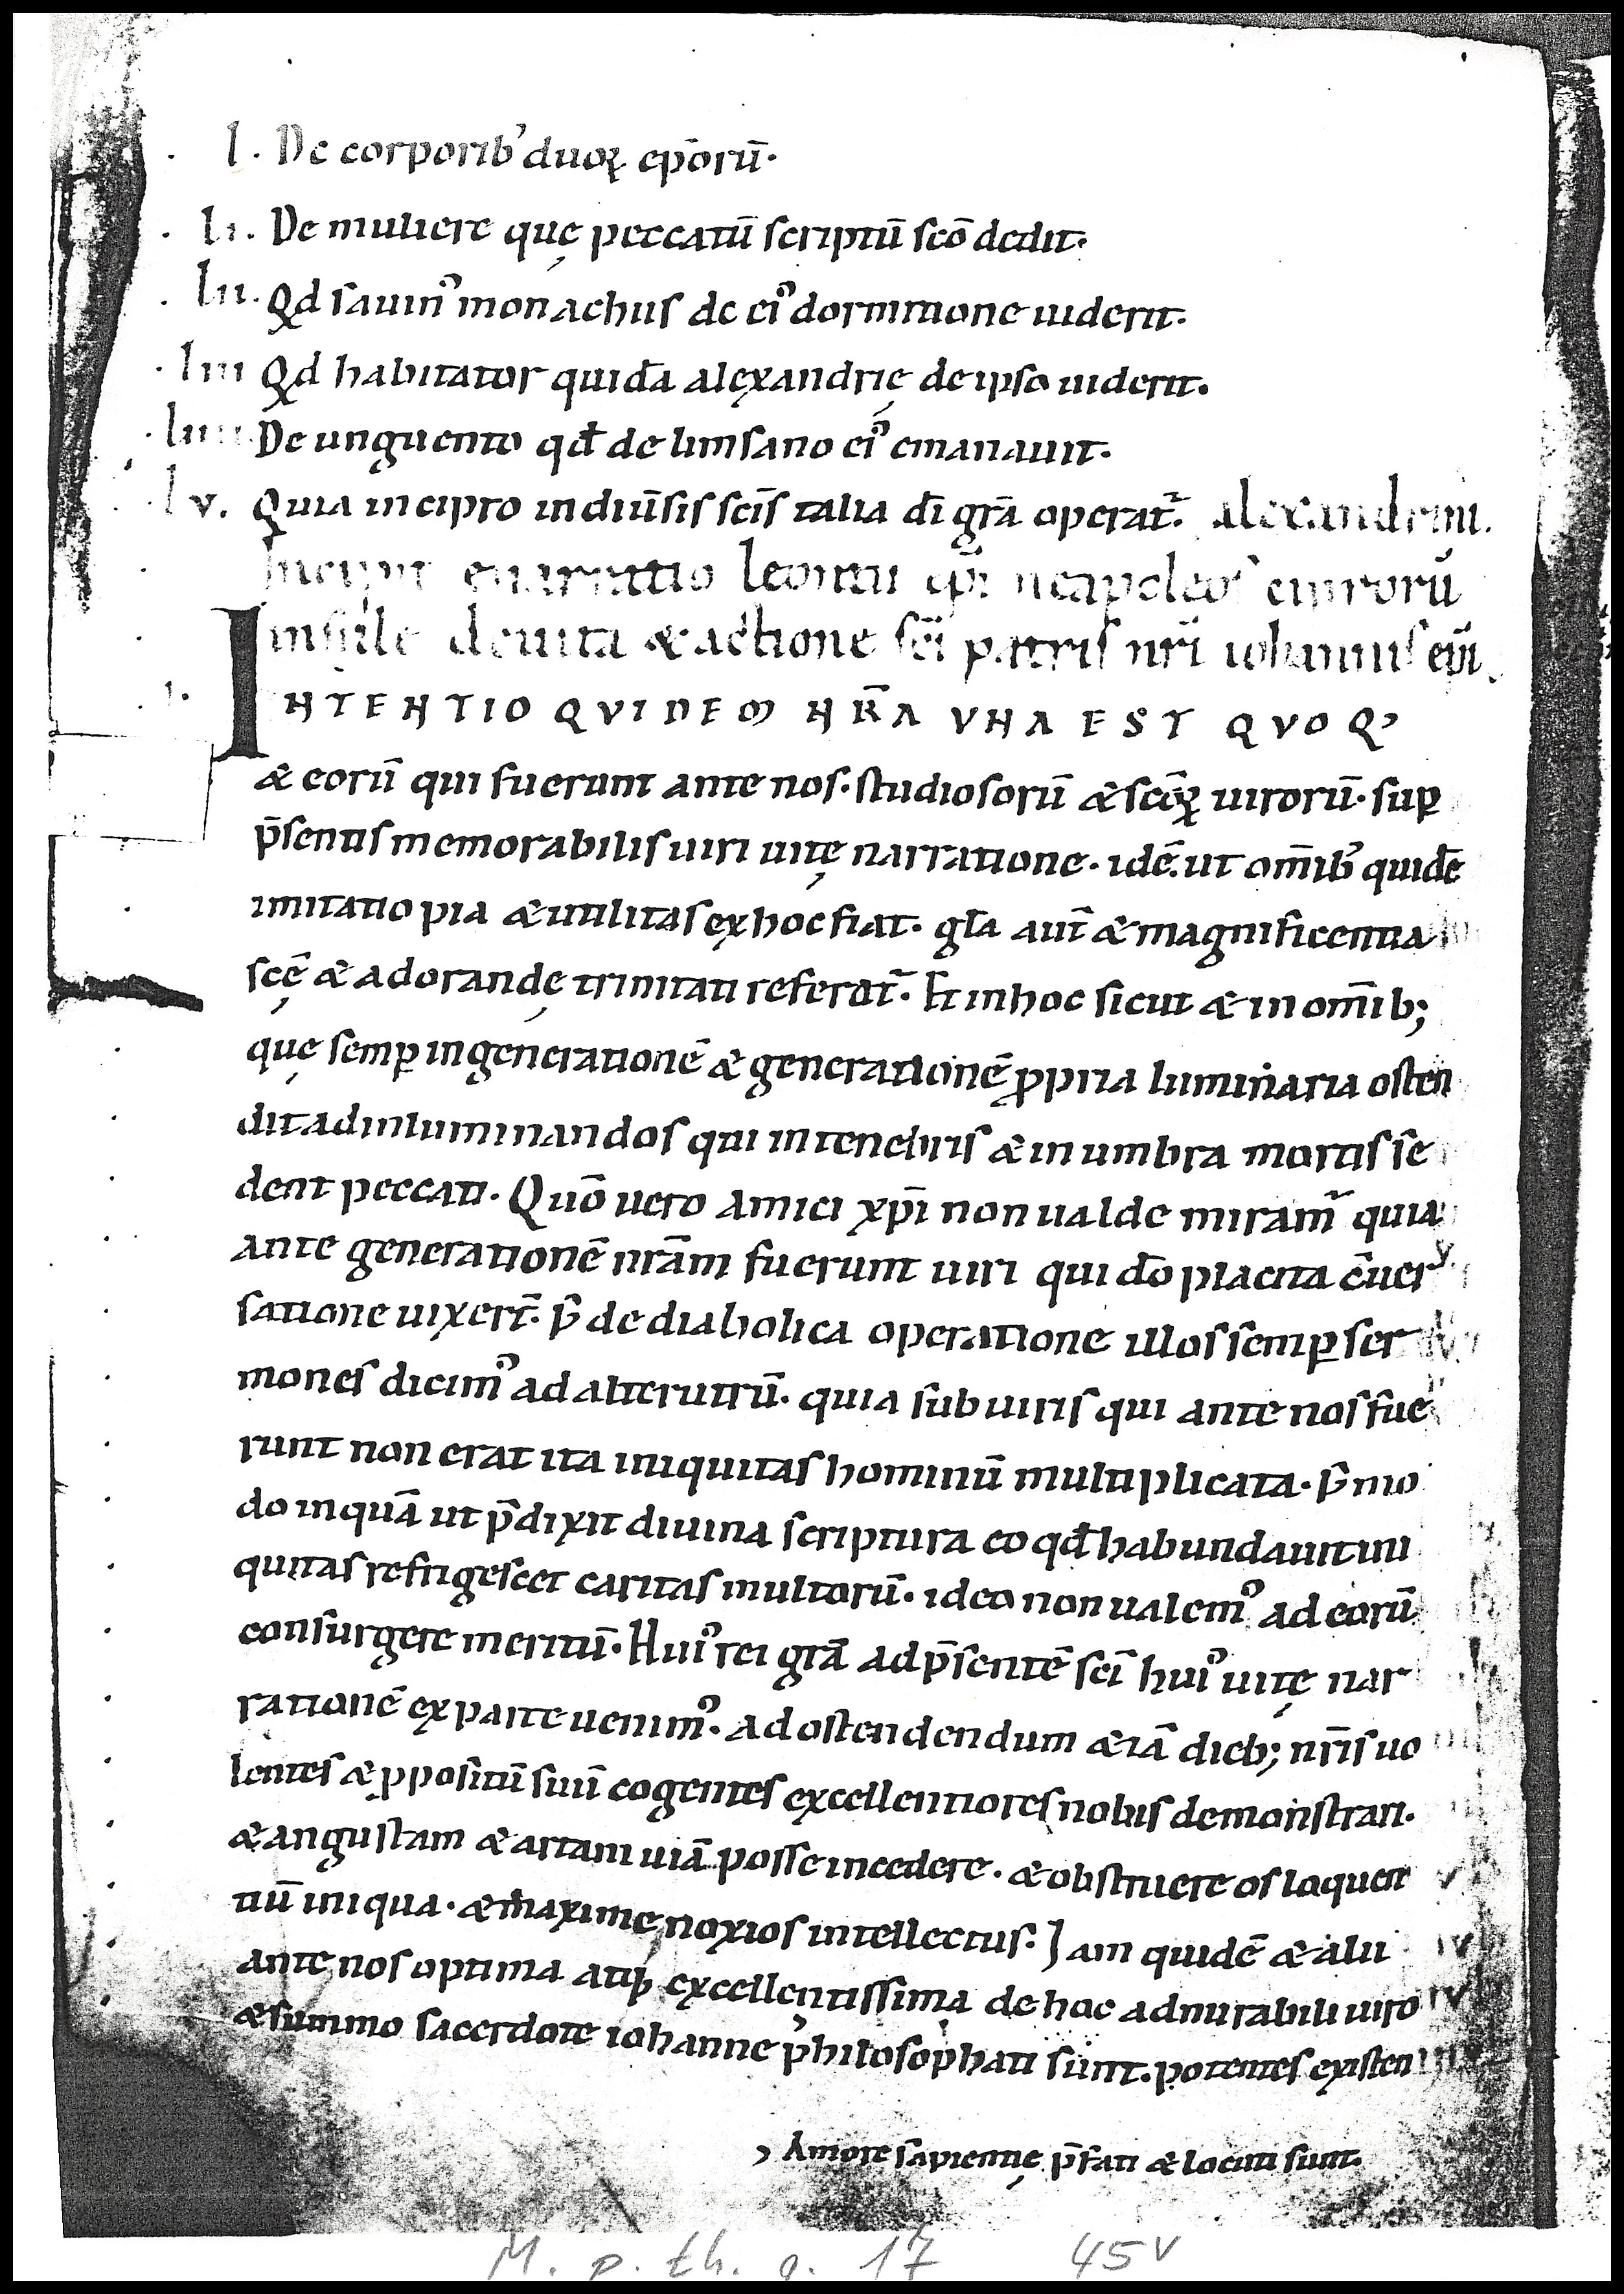 .l. De corporib' duoꝝ ep̄orū.
.lı. De muliere quę peccatū scriptū scō dedit.
.lıı. Qd sauin' monachus de ei' dormitione uiderit.
.lııı Qd habitator quidā alexandrię de ipso uiderit.
.lıııı. De unguento qđ de limsano ei' emanauit.
.lv. Quia in cipro in diūsis scīs talia dī grā operat̄. alexandrini.
Incipit enarratio leontii ep̄i neapoleos ciprorū
insule de uita & actione scī patris nrī iohannis ep̄i
.ı. INTENTIO QVIDEM NR̄A VNA EST QVOQ'
& eorū qui fuerunt ante nos. studiosorū & scōꝝ uirorū. suꝑ
p̄sentis memorabilis uiri uitę narratione. idē. ut om̄ib' quidē
imitatio pia & utilitas ex hoc fiat. gła aut̄ & magnificentia
scę̄ & adorandę trinitati referat̄. Et in hoc sicut & in om̄ib;
quę semꝑ in generationē & generationē ꝓpria luminaria osten
dit ad inluminandos qui in tenebris & in umbra mortis se
dent peccati. Quō uero amici xp̄i non ualde miram̄ quia
ante generationē nrām fuerunt uiri qui dō placita c̄uer
satione uixer̄t. ꝩ de diabolica operatione illos semꝑ ser
mones dicim' ad alterutrū. quia sub uiris qui ante nos fue
runt non erat ita iniquitas hominū multiplicata. ꝩ mo
do inquā ut p̄dixit diuina scriptura eo qđ habundauit ini
quitas refrigescet caritas multorū. ideo non ualem' ad eorū
consurgere meritū. Hui' rei grā ad p̄sentē scī hui' uitę nar
rationē ex parte uenim'. ad ostendendum & iā dieb; nrīs uo
lentes & ꝓpositū suū cogentes excellentiores nobis demonstrari.
& angustam & artam uiā posse incedere. & obstruere os loquen
tiū iniqua. & maxime noxios intellectus. Iam quidē & alii
ante nos optima atq; excellentissima de hoc admirabili uiro
& summo sacerdote iohanne philosophati sunt. potentes existen
, Amore sapientię p̄fati & locuti sunt.
M. p. th. q. 17 45v